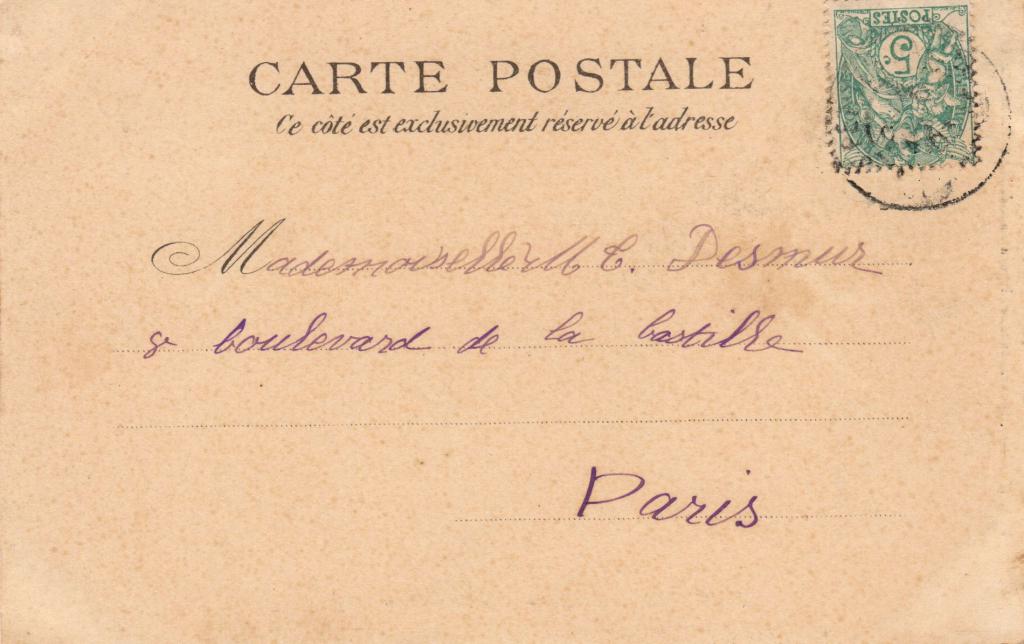 CARTE POSTALE
Ce côté est exclusivement réservé à l'adresse
POSTES
5c.
Mademoiselle M C. Desmur
8 boulevard de la bastille
Paris